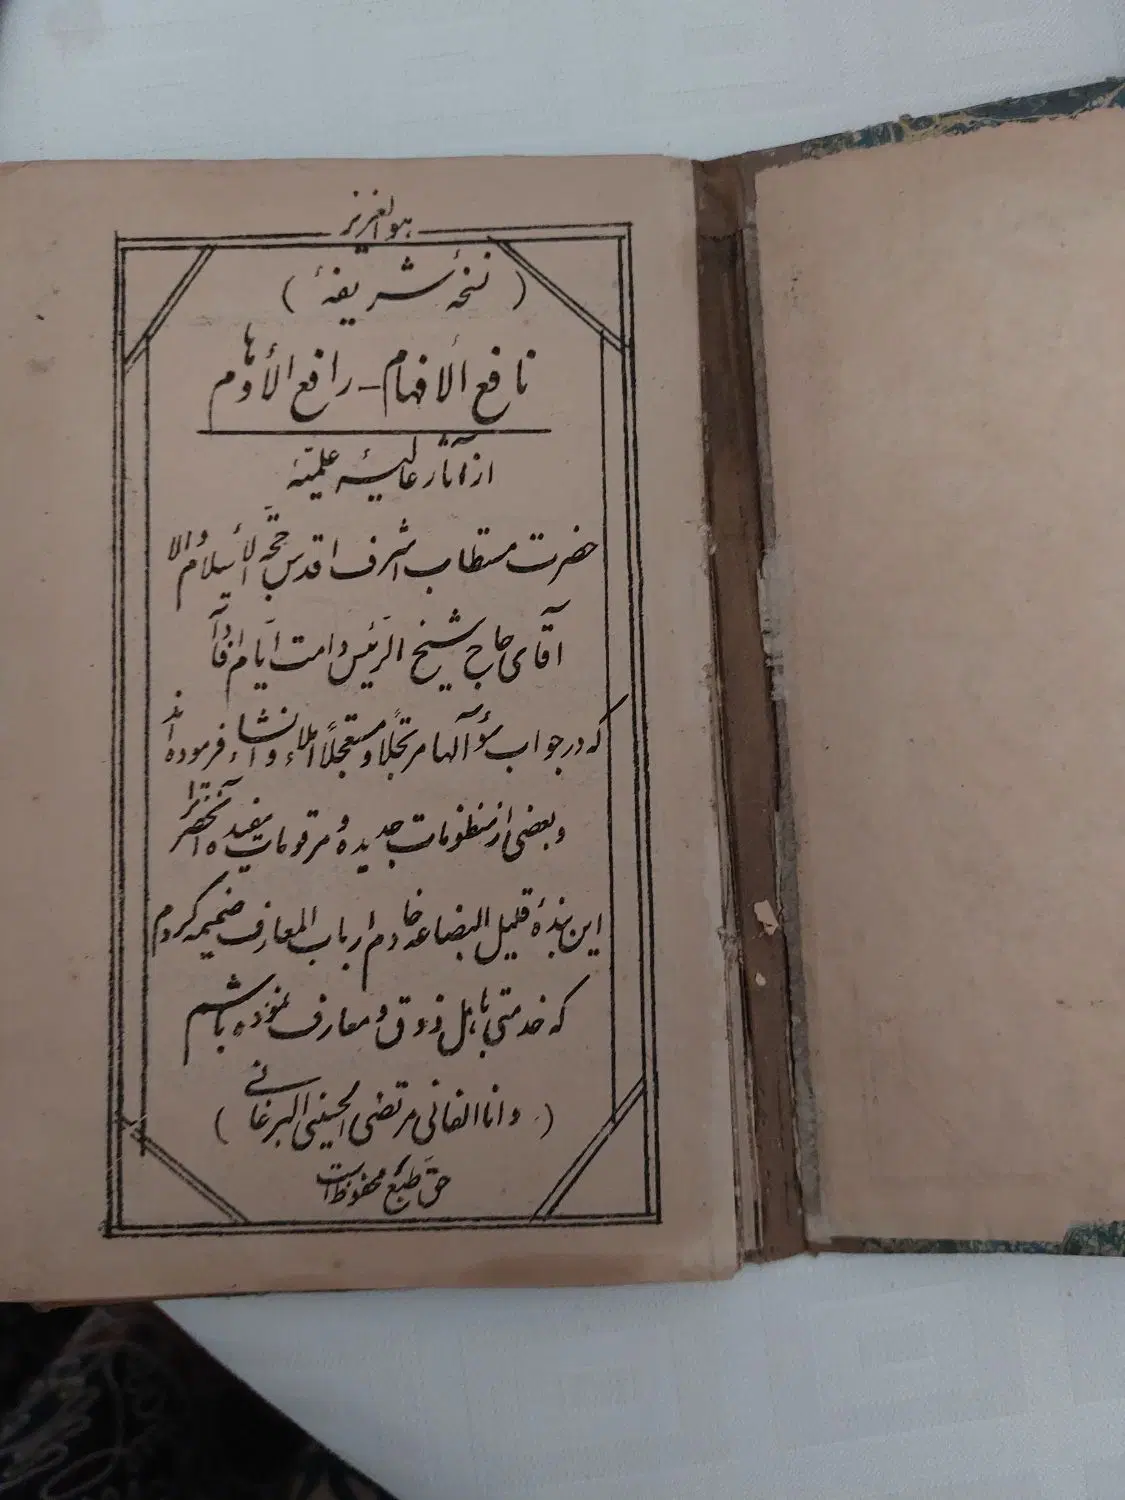 هو العزیز
( نسخهٔ شریفهٔ )
نافع الأفهام – رافع الأوهام
از آثار عالیهٔ علمیّهٔ
حضرت مستطاب اشرف اقدس حجّة الأسلام والا
آقای حاج شیخ الرّئیس دامت ایّام افاداته
که در جواب سؤآلها مرتجلاً و مستعجلاً املاء و انشاء فرموده اند
و بعضی از منظومات جدیده و مرقومات مفیده آنحضرترا
این بندهٔ قلیل البضاعه خادم ارباب المعارف ضمیمه کردم
که خدمتی باهل ذوق و معارف نموده باشم
( و انا الفانی مرتضی الحسینی البرغانی )
حقّ طبع محفوظ است